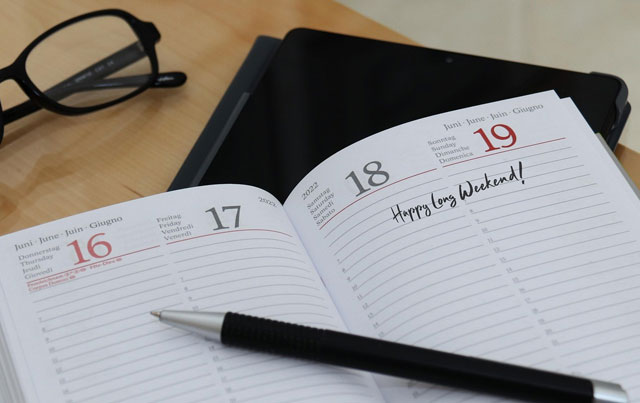 Juni · June · Juin · Giugno
Donnerstag
Thursday
Jeudi
Giovedì
16
Freitag
Friday
Vendredi
Venerdì
17
2022
2022
Samstag
Saturday
Samedi
Sabato
18
Juni · June · Juin · Giugno
Sonntag
Sunday
Dimanche
Domenica
19
Happy Long Weekend!